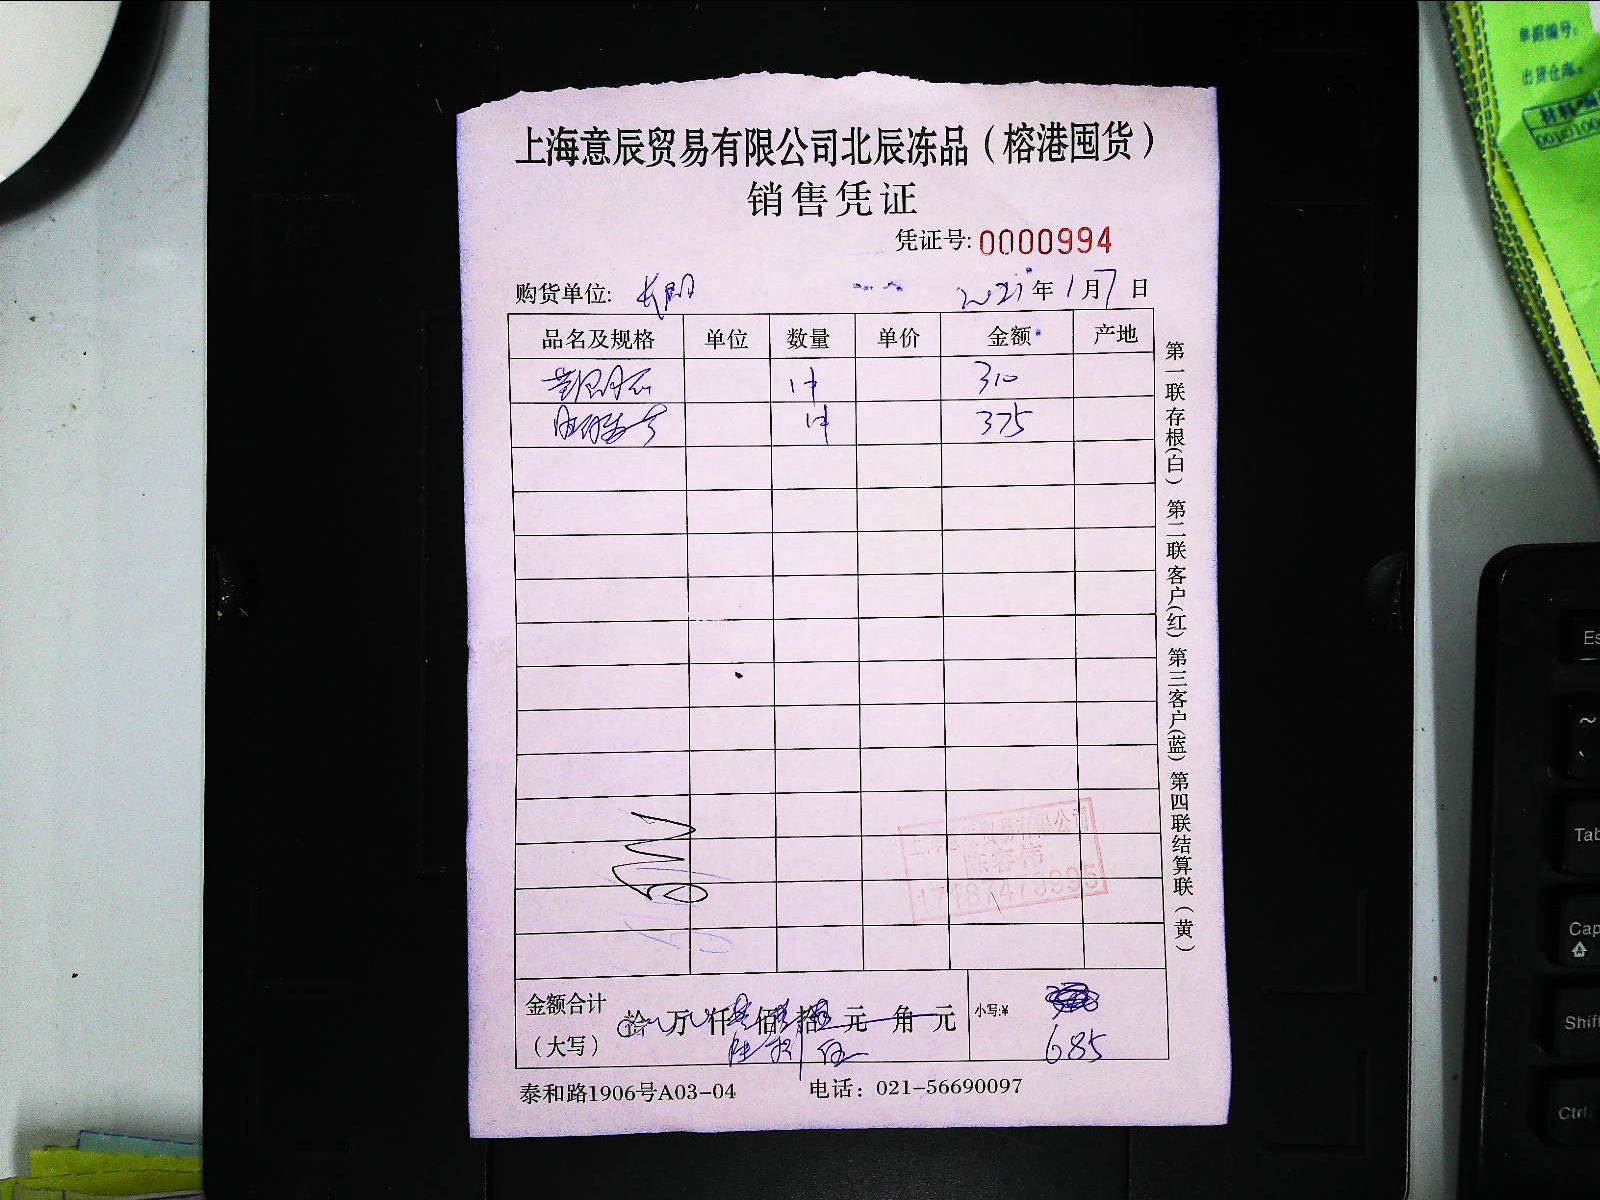 上海意辰贸易有限公司北辰冻品（榕港囤货）
销售凭证
凭证号: 0000994
购货单位: 2021年1月7日
品名及规格 单位 数量 单价 金额 产地
1件 310
1件 375
金额合计 拾 万 仟 佰 拾 元 角 元 小写:¥
（大写） 陆 捌 伍 685
泰和路1906号A03-04 电话：021-56690097
第一联存根(白) 第二联客户(红) 第三客户(蓝) 第四联结算联（黄）
上海意辰贸易有限公司
单据编号:
出货仓库:
Es
~
`
Tab
Cap
Shift
Ctrl